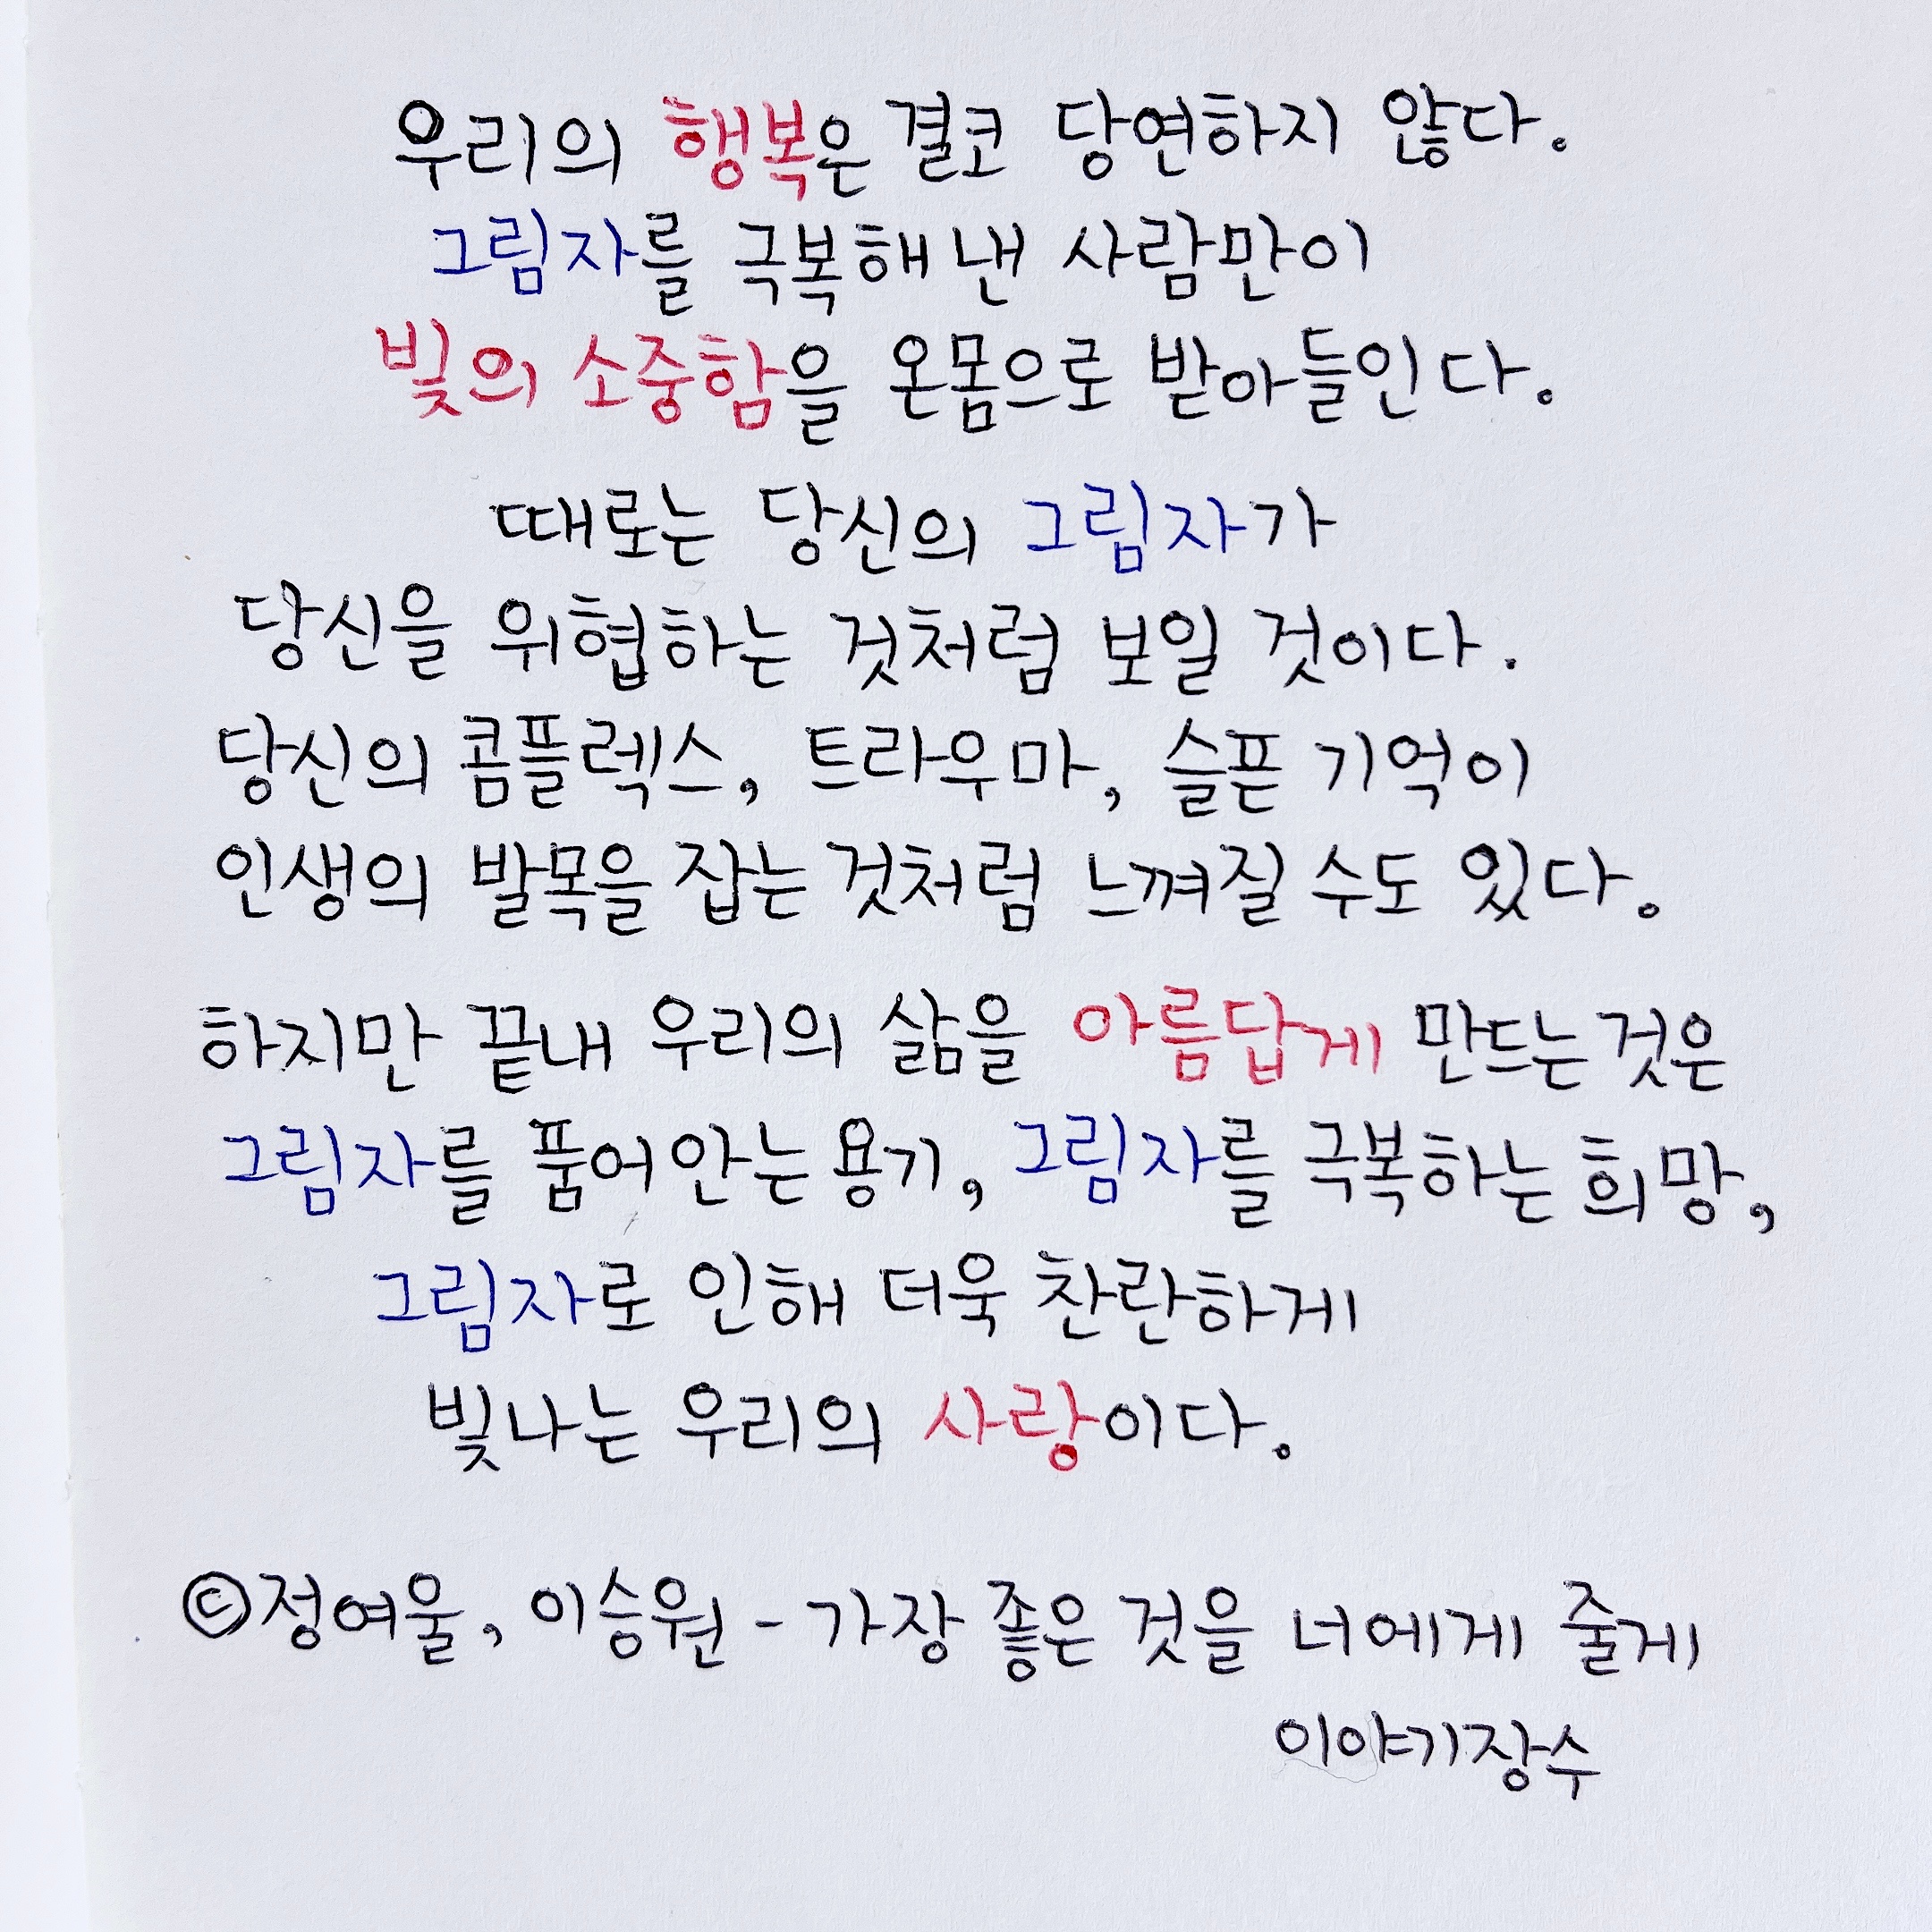 우리의 행복은 결코 당연하지 않다.
그림자를 극복해낸 사람만이
빛의 소중함을 온몸으로 받아들인다.
때로는 당신의 그림자가
당신을 위협하는 것처럼 보일 것이다.
당신의 콤플렉스, 트라우마, 슬픈 기억이
인생의 발목을 잡는 것처럼 느껴질 수도 있다.
하지만 끝내 우리의 삶을 아름답게 만드는 것은
그림자를 품어안는 용기, 그림자를 극복하는 희망,
그림자로 인해 더욱 찬란하게
빛나는 우리의 사랑이다.
©정여울, 이승원 - 가장 좋은 것을 너에게 줄게
이야기장수